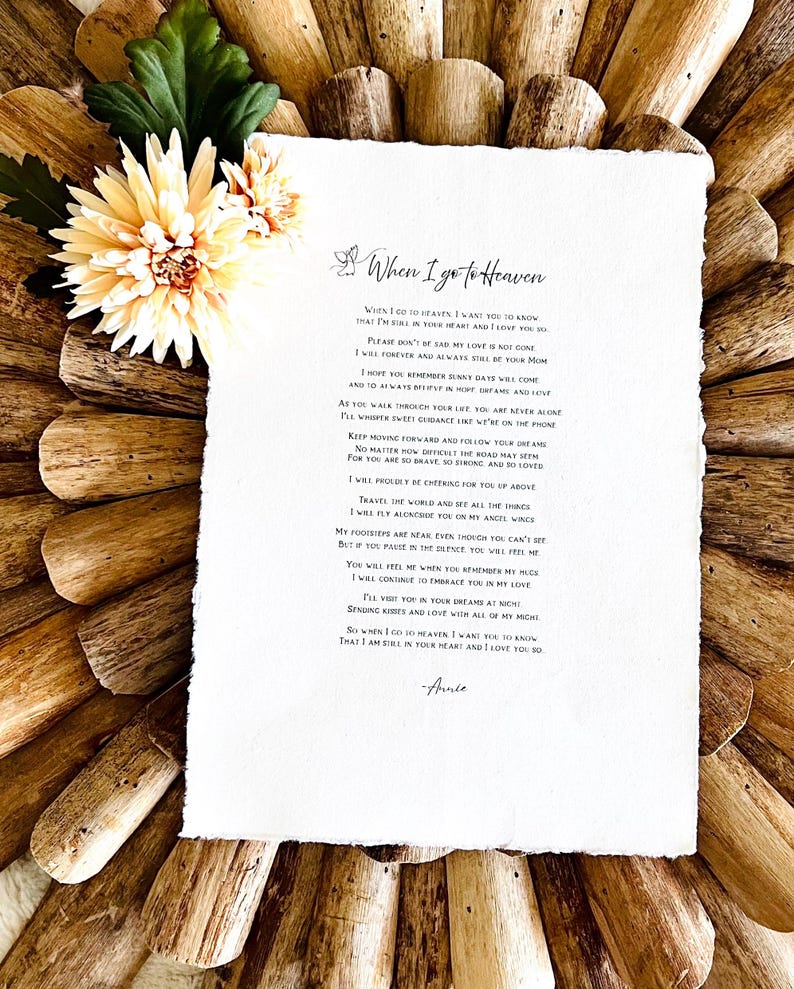 When I go to Heaven
When I go to heaven, I want you to know,
that I'm still in your heart and I love you so.
Please don't be sad, my love is not gone.
I will forever and always, still be your Mom
I hope you remember sunny days will come
and to always believe in hope, dreams, and love
As you walk through your life, you are never alone
I'll whisper sweet guidance like we're on the phone
Keep moving forward and follow your dreams,
No matter how difficult the road may seem
For you are so brave, so strong, and so loved,
I will proudly be cheering for you up above.
Travel the world and see all the things
I will fly alongside you on my angel wings
My footsteps are near, even though you can't see,
But if you pause in the silence, you will feel me.
You will feel me when you remember my hugs,
I will continue to embrace you in my love.
I'll visit you in your dreams at night
Sending kisses and love with all of my might.
So when I go to heaven, I want you to know
That I am still in your heart and I love you so..
-Annie